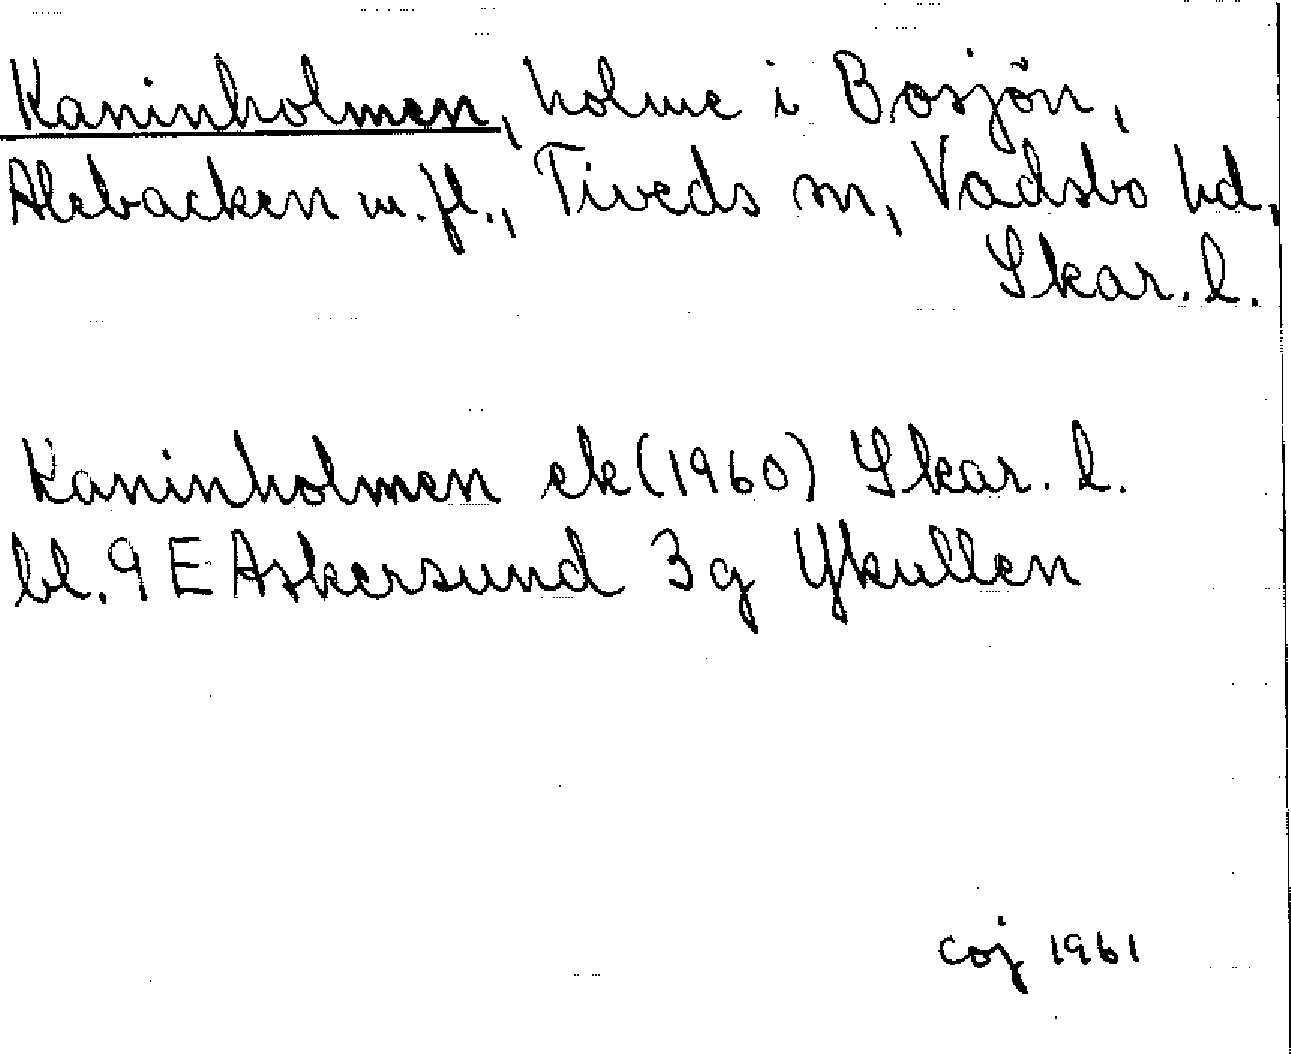 Kaninholmen, holme i Bosjön,
Alebacken m.fl., Tiveds sn, Vadsbo hd,
Skar. l.
Kaninholmen ek (1960) Skar. l.
bl. 9 E Askersund 3 g Ykullen
coj 1961